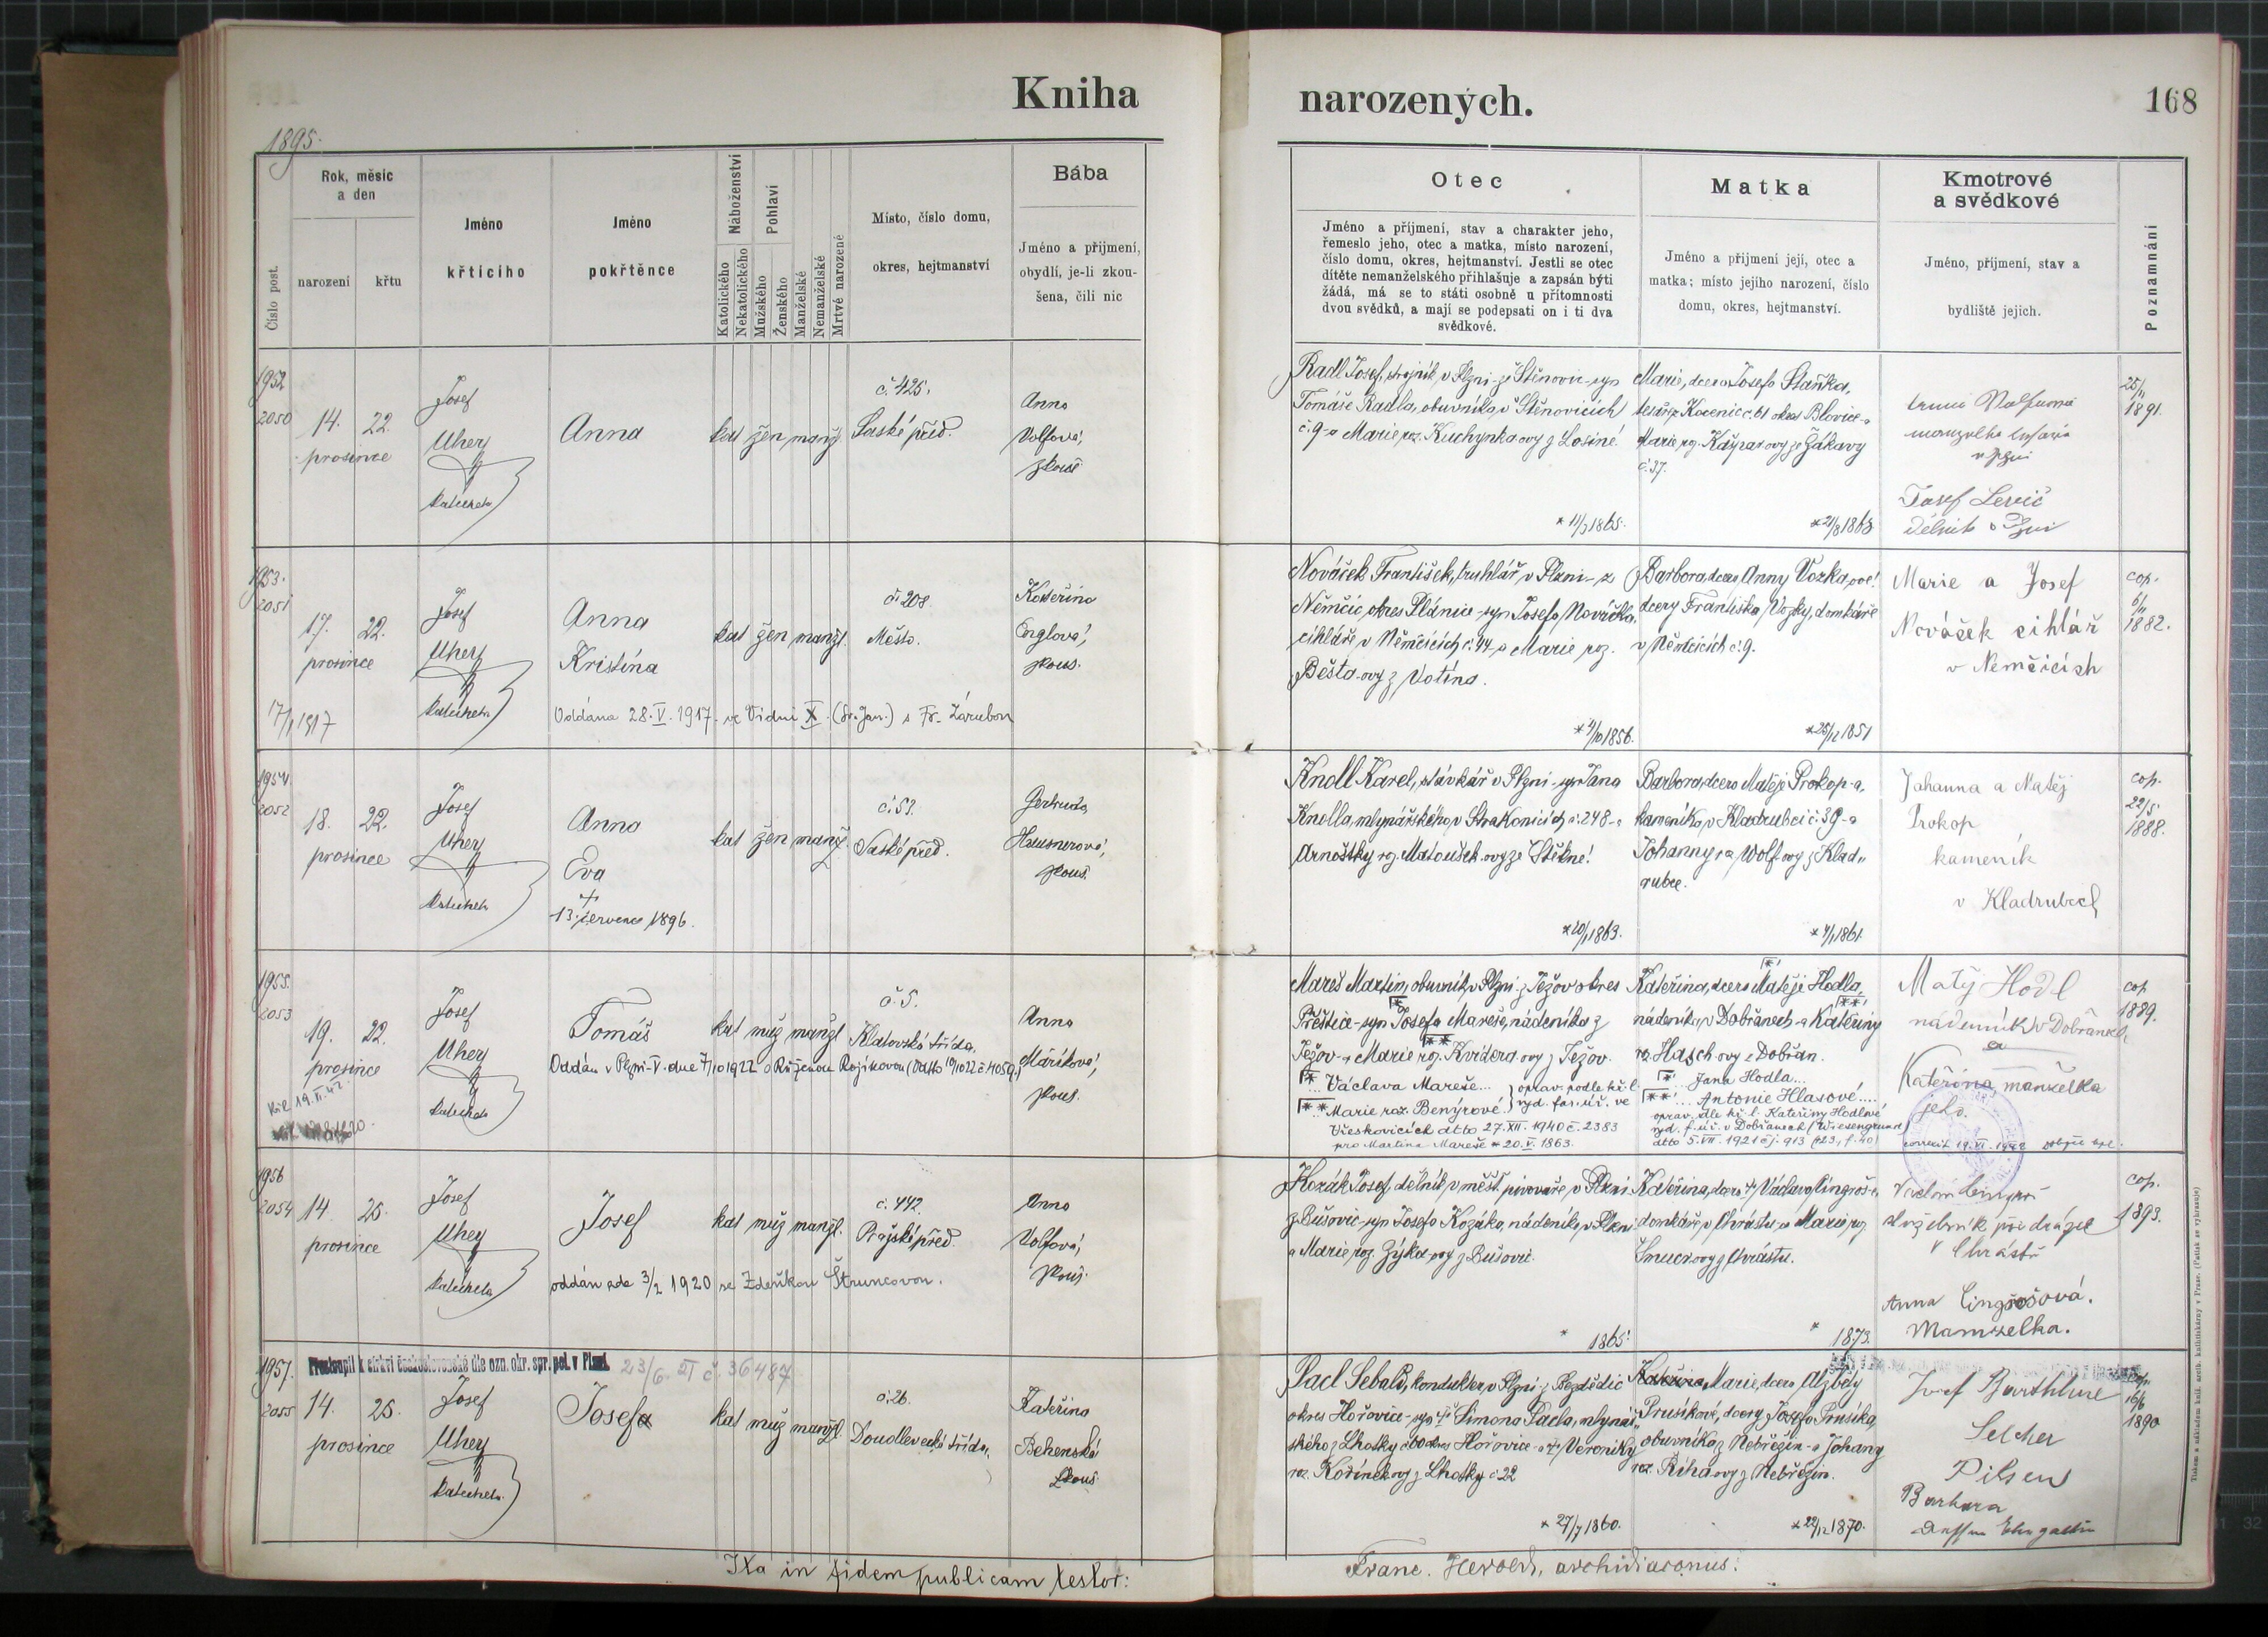 Kniha
narozených.
168
1895.
Číslo post.
Rok, měsíc
a den
narození
křtu
Jméno
křtícího
Jméno
pokřtěnce
Náboženství
Katolického
Nekatolického
Pohlaví
Mužského
Ženského
Manželské
Nemanželské
Mrtvě narozené
Místo, číslo domu,
okres, hejtmanství
Bába
Jméno a příjmení,
obydlí, je-li zkou-
šena, čili nic
Otec
Jméno a příjmení, stav a charakter jeho,
řemeslo jeho, otec a matka, místo narození,
číslo domu, okres, hejtmanství. Jestli se otec
dítěte nemanželského přihlašuje a zapsán býti
žádá, má se to státi osobně u přítomnosti
dvou svědků, a mají se podepsati on i ti dva
svědkové.
Matka
Jméno a příjmení její, otec a
matka; místo jejího narození, číslo
domu, okres, hejtmanství.
Kmotrové
a svědkové
Jméno, příjmení, stav a
bydliště jejich.
Poznamnání
1952
2050
14. 22.
prosince
Josef
Uhery
katecheta
Anna
kat žen manž.
č. 425.
Saské před.
Anna
Volfová,
zkouš
Radl Josef, strojník v Plzni - ze Štěnovic - syn
Tomáše Radla, obuvníka v Štěnovicích
č. 9 - a Marie roz. Kuchynka ovy z Losiné.
* 11/3 1865.
Marie, dcera Josefa Staňka,
tesaře z Kocenic č. 61 okres Blovice - a
Marie roz. Kašpar ovy ze Žákavy
č. 37.
* 21/8 1868
v Plzni
Josef
dělník v Plzni
25/11
1891.
1953.
2051
17. 22.
prosince
17/1 1917
Josef
Uhery
katecheta
Anna
Kristina
Oddána 28. V. 1917. ve Vídni X. (Sv. Jan.) s Fr. Zárubou
kat žen manžl.
č. 208
Město.
Kateřina
Cinglová,
zkouš.
Nováček František, truhlář v Plzni - z
Němčic, okres Plánice - syn Josefa Nováčka,
cihláře v Němčicích č. 44 - a Marie roz.
Bešta - ovy z Votína.
* 4/10 1856.
Barbora, dcera Anny Vozka, ové
dcery Františka Vozky, domkáře
v Němčicích č. 9.
* 25/12 1851
Marie a Josef
Nováček cihlář
v Němčicích
cop.
6/11
1882.
1954.
2052
18. 22.
prosince
Josef
Uhery
katecheta
Anna
Eva
+
13. července 1896.
kat žen manž.
č. 53.
Saské před.
Gertruda
Hausnerová,
zkouš.
Knoll Karel, stávkář v Plzni - syn Jana
Knolla, mlynářského v Strakonicích č. 248 - a
Arnoštky roz. Matoušek - ovy ze Štěkně!
* 20/1 1863.
Barbora, dcera Matěje Prokop - a,
kameníka v Kladrubci č. 39 - a
Johanny roz. Wolf ovy z Klad„
rubce.
* 4/1 1861
Johanna a Matěj
Prokop
kameník
v Kladrubech
cop.
22/5
1888.
1955.
2053
19. 22.
prosince
Josef
Uhery
katecheta
Tomáš
Oddán v Plzni - V. dne 7/10 1922 s Růženou Rojíkovou
kat muž manžl
č. 5.
Klatovská třída,
Anna
Maříková,
zkouš.
Mareš Martin, obuvník v Plzni - z Ježov okres
Přeštice - syn Josefa Mareše, nádeníka z
Ježov - a Marie roz. Kvidera ovy z Ježov.
* Václava Mareše...
** Marie roz. Benýrové
oprav. podle kř. l.
vyd. far. úř. ve
Vřeskovicích dtto 27. XII. 1940 č. 2383
pro Martina Mareše * 20. V. 1863.
Kateřina, dcera Matěje Hodla,
nádeníka, v Dobřanech - a Kateřiny
roz. Hasch - ovy z Dobřan.
* Jana Hodla...
** Antonie Hlasové....
oprav. dle kř. l. Kateřiny Hodlové
vyd. f. úř. v Dobřanech (Wiesengrund)
dtto 5. VII. 1921 čj. 913
Matěj Hodl
nádeník v Dobřanech
a
Kateřina manželka
jeho.
cop
1889.
1956
2054
14 25.
prosince
Josef
Uhery
katecheta
Josef
oddán zde 3/2 1920 se Zdeňkou Štruncovou.
kat muž manžl.
č. 442.
Pražské před.
Anna
Volfová,
zkouš.
Kozák Josef, dělník v měšť. pivováře v Plzni
z Bušovic - syn Josefa Kozáka, nádeníka, v Plzni
a Marie roz. Zýka - ovy z Bušovic.
* 1865.
Kateřina, dcera Václava Cingroš - a
domkáře, v Chrástu - a Marie roz.
Šmucr ovy z Chrástu.
* 1873.
služebník při dráze
v Chrástě
Anna Cingrošová.
Manželka.
cop.
1893.
1957.
2055
Přestoupil k církvi československé dle ozn. okr. spr. pol. v Plzni. 23/6. 21 č. 36487
14. 25.
prosince
Josef
Uhery
katecheta
Josef
kat muž manžl.
č. 26.
Doudlevecká třída,
Kateřina
Behenská
zkouš
Pacl Sebald, kondukter v Plzni - z Bezdědic
okres Hořovice - syn Šimona Pacla, mlynář„
ského z Lhotky okres Hořovice - a Veroniky
roz. Kořínek ovy z Lhotky č. 22
* 27/7 1860.
Kateřina, Marie, dcera Alžběty
Prusíkové, dcery Josefa Prusíka,
obuvníka z Nebřezin - a Johany
roz. Říha ovy z Nebřezin.
* 22/12 1870.
Josef Barthlme
Selcher
Pilsen
Barbara
cop.
16/6
1890
Ita in fidem publicam testor:
Franc. Herold, archidiaconus.